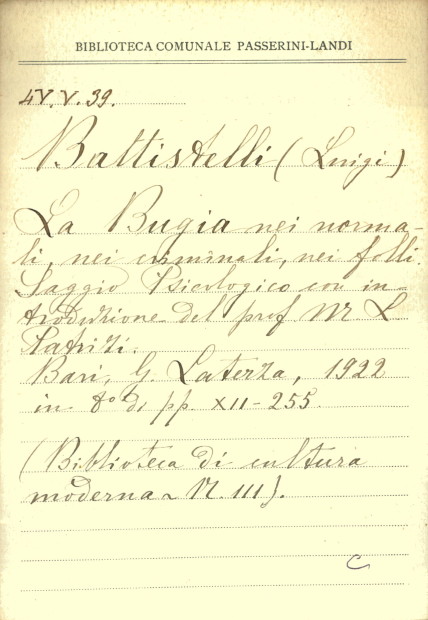 BIBLIOTECA COMUNALE PASSERINI-LANDI
4Y.V.39.
Battistelli (Luigi)
La Bugia nei norma-
li, nei criminali, nei folli.
Saggio Psicologico con in-
troduzione del prof M L
Patrizi.
Bari, G. Laterza, 1922
in 8° di pp XII-255.
(Biblioteca di cultura
moderna ~ N. 111).
C